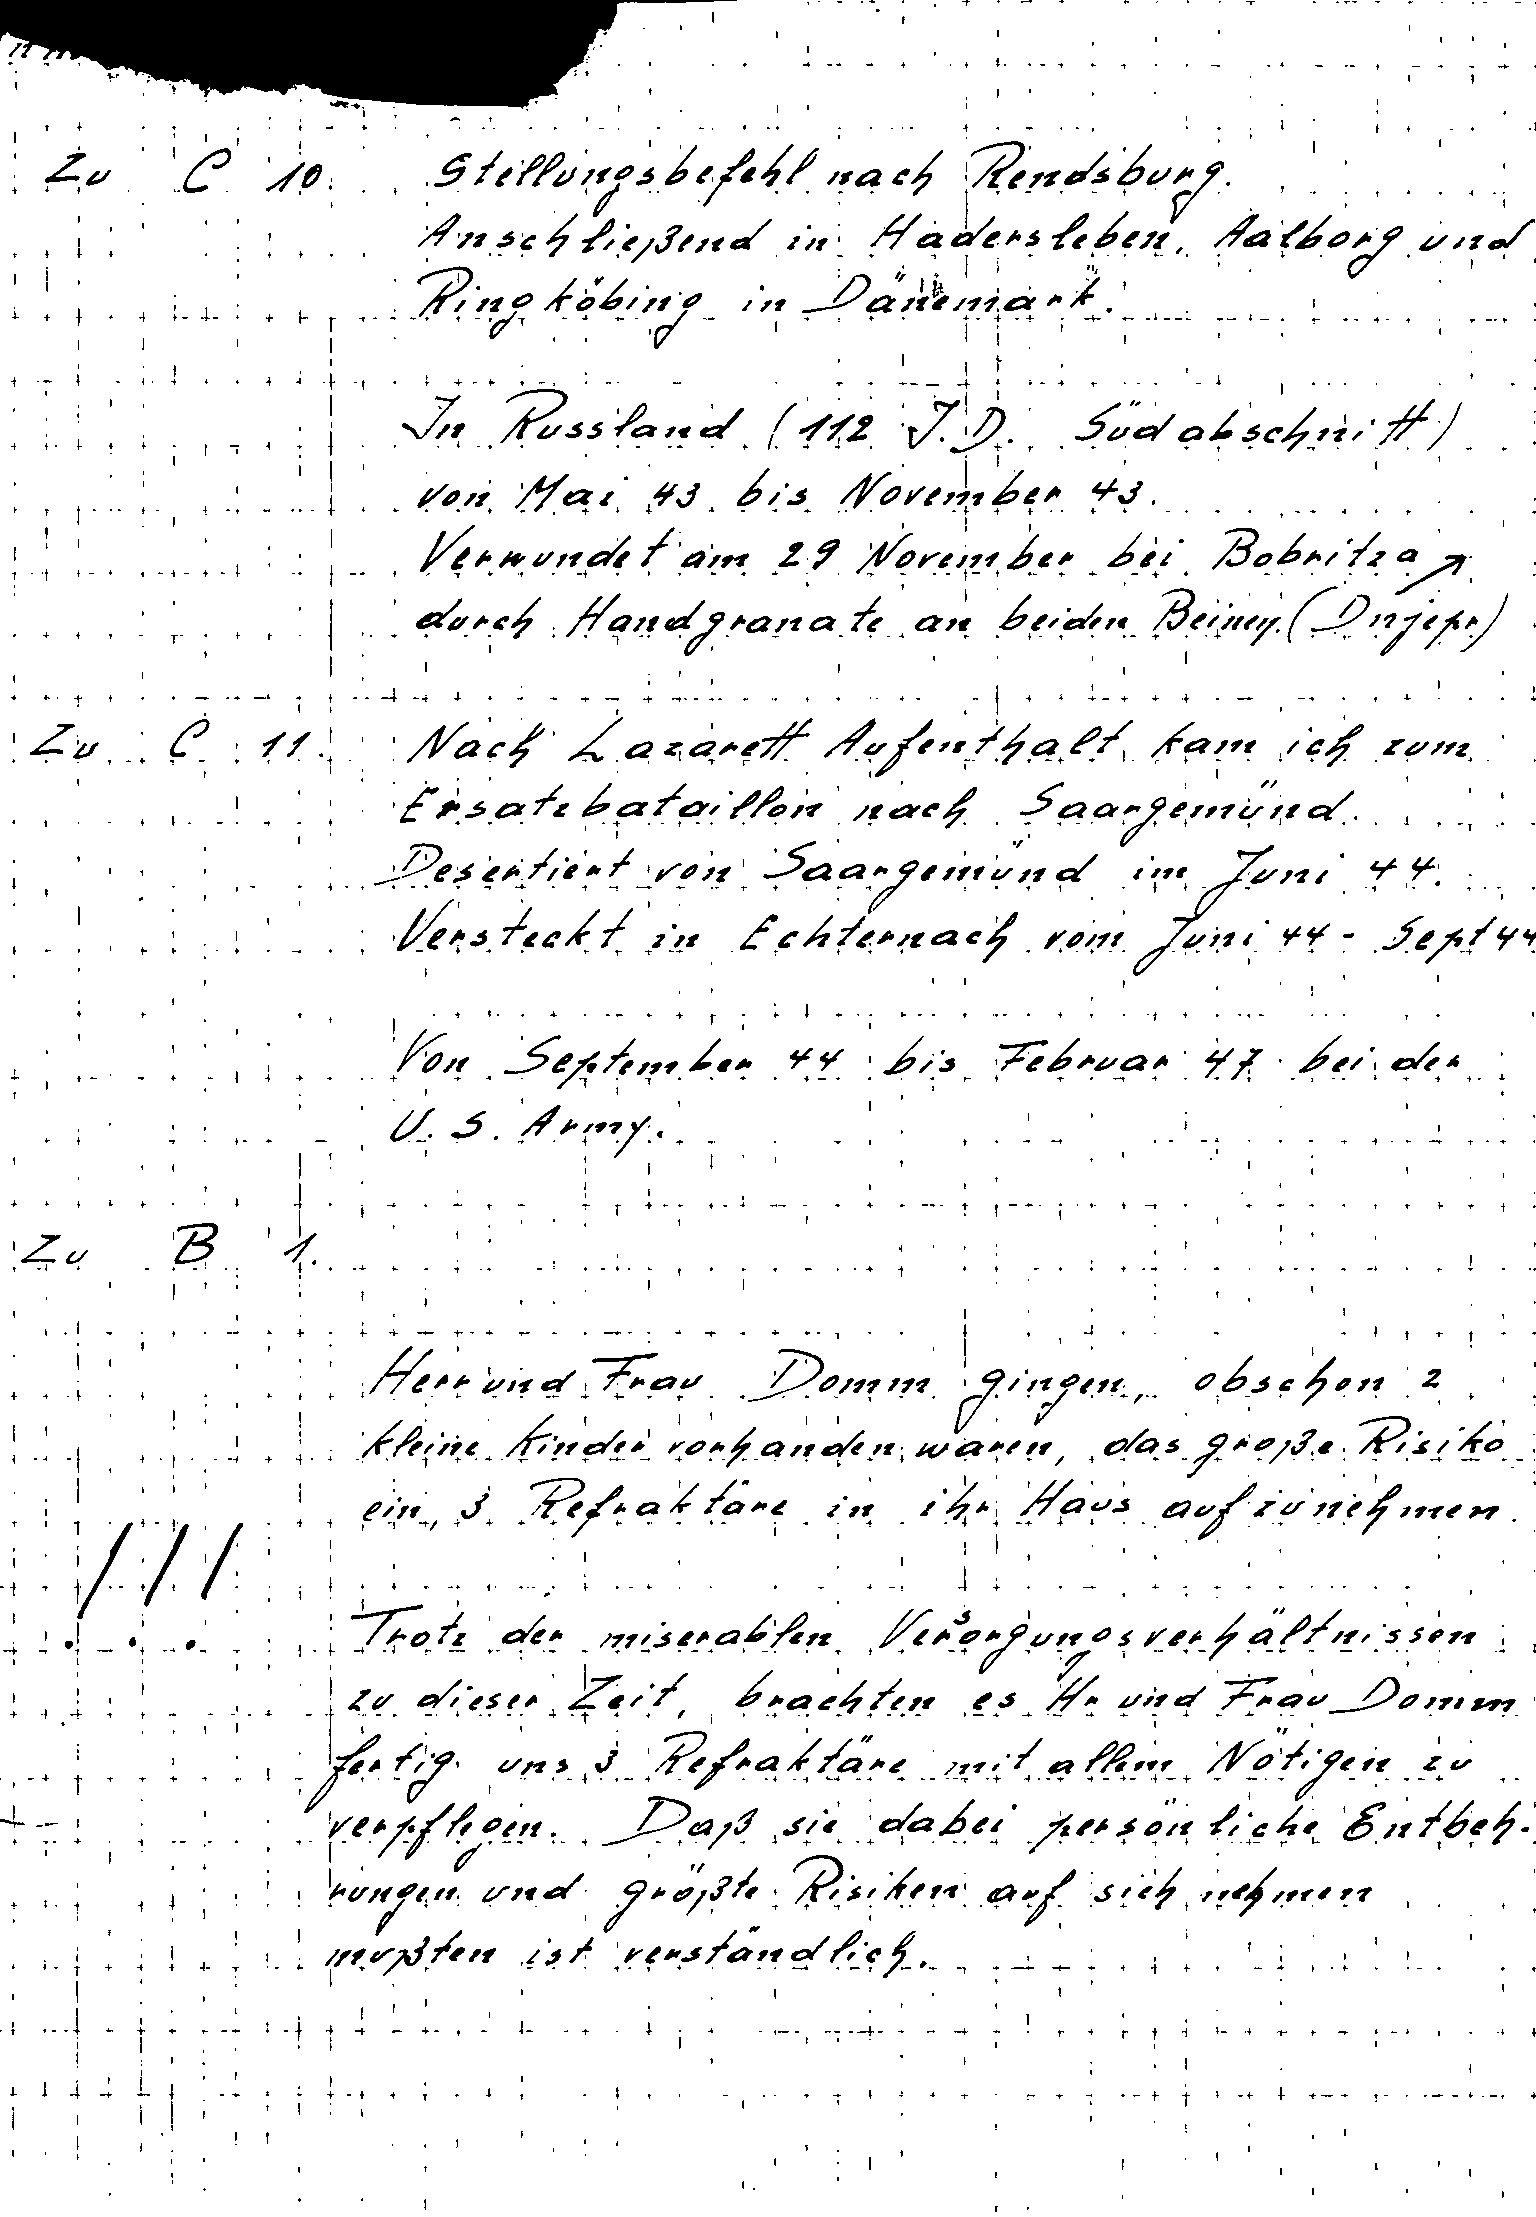 Zu C 10. Stellungsbefehl nach Rendsburg.
Anschließend in Hadersleben, Aalborg und
Ringköbing in Dänemark.
In Russland (112 J.D. Südabschnitt)
von Mai 43 bis November 43.
Verwundet am 29 November bei Bobritza ↗
durch Handgranate an beiden Beinen. (Dnjepr)
Zu C 11. Nach Lazarett Aufenthalt kam ich zum
Ersatzbataillon nach Saargemünd.
Desertiert von Saargemünd im Juni 44.
Versteckt in Echternach vom Juni 44 - Sept 44
Von September 44 bis Februar 47 bei der
U. S. Army.
Zu B 1.
Herr und Frau Domm gingen, obschon 2
kleine Kinder vorhanden waren, das große Risiko
ein, 3 Refraktäre in ihr Haus aufzunehmen.
! ! !
Trotz der miserablen Versorgungsverhältnissen
zu dieser Zeit, brachten es Hr und Frau Domm
fertig uns 3 Refraktäre mit allem Nötigen zu
verpflegen. Daß sie dabei persönliche Entbeh-
rungen und größte Risiken auf sich nehmen
mußten ist verständlich.